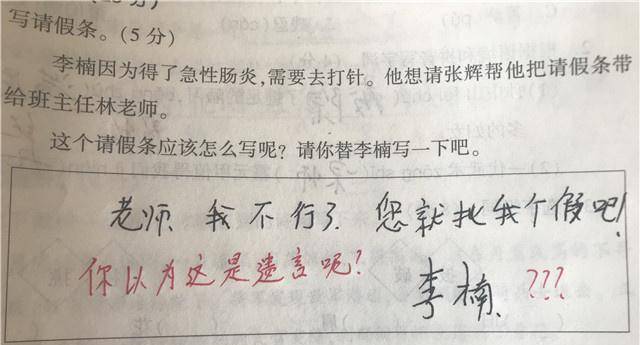 写请假条。(5分)
李楠因为得了急性肠炎,需要去打针。他想请张辉帮他把请假条带
给班主任林老师。
这个请假条应该怎么写呢?请你替李楠写一下吧。
老师 我不行了 您就批我个假吧!
你以为这是遗言呢?
李楠、???